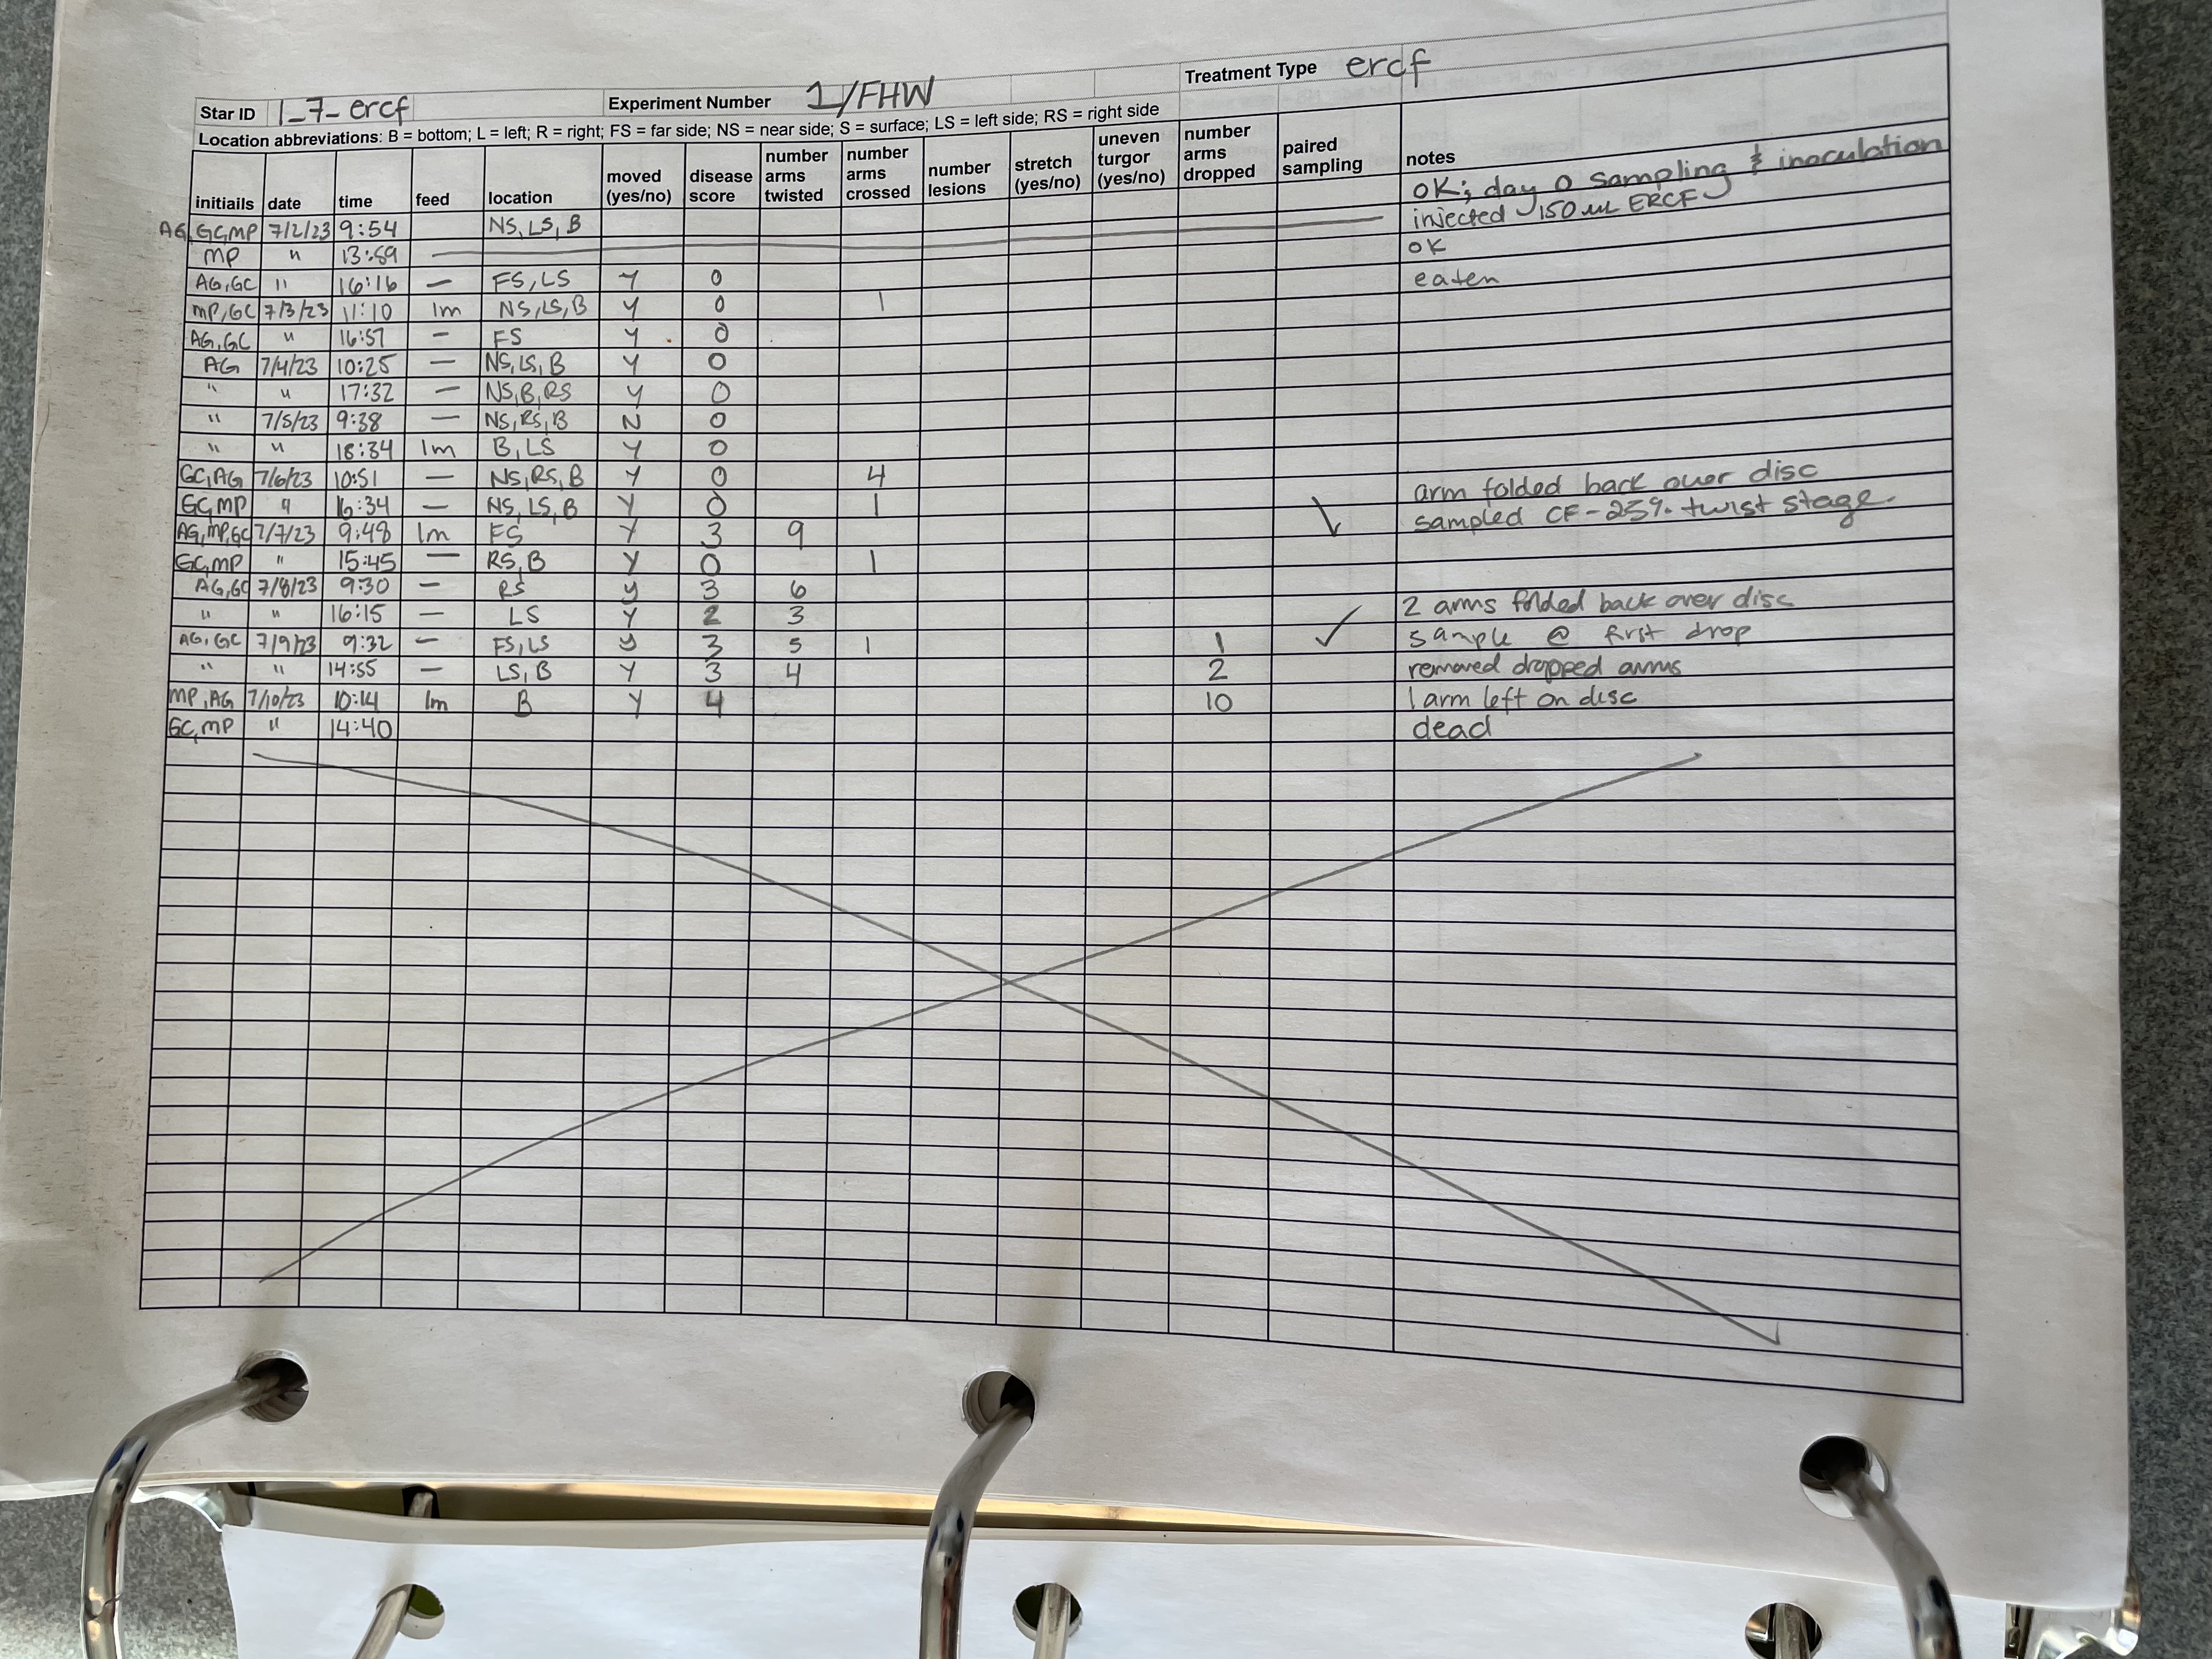 Star ID 1_7_ercf Experiment Number 1/FHW Treatment Type ercf
Location abbreviations: B = bottom; L = left; R = right; FS = far side; NS = near side; S = surface; LS = left side; RS = right side
initiails date time feed location moved (yes/no) disease score number arms twisted number arms crossed number lesions stretch (yes/no) uneven turgor (yes/no) number arms dropped paired sampling notes
AG,GC,MP 7/2/23 9:54 NS, LS, B OK; day 0 sampling & inoculation
MP " 13:59 — injected 150 uL ERCF
AG,GC " 16:16 — FS, LS Y 0 OK
MP,GC 7/3/23 11:10 1m NS, LS, B Y 0 1 eaten
AG,GC " 16:57 — FS Y 0
AG 7/4/23 10:25 — NS, LS, B Y 0
" " 17:32 — NS, B, RS Y 0
" 7/5/23 9:38 — NS, RS, B N 0
" " 18:34 1m B, LS Y 0
GC,AG 7/6/23 10:51 — NS, RS, B Y 0 4
GC,MP " 16:34 — NS, LS, B Y 0 1 arm folded back over disc
AG,MP,GC 7/7/23 9:48 1m FS Y 3 9 ✓ sampled CF-25% twist stage.
GC,MP " 15:45 — RS, B Y 0 1
AG,GC 7/8/23 9:30 — RS Y 3 6
" " 16:15 — LS Y 2 3 2 arms folded back over disc
AG,GC 7/9/23 9:32 — FS, LS Y 3 5 1 1 ✓ sample @ first drop
" " 14:55 — LS, B Y 3 4 2 removed dropped arms
MP,AG 7/10/23 10:14 1m B Y 4 10 1 arm left on disc
GC,MP " 14:40 dead